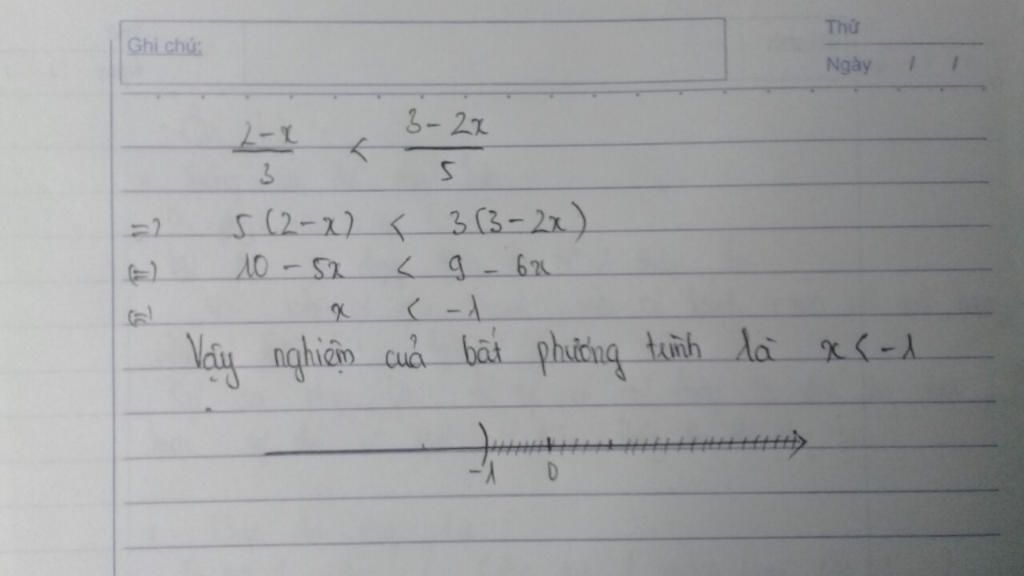 Ghi chú:
Thứ
Ngày / /
2-x/3 < 3-2x/5
=> 5(2-x) < 3(3-2x)
(=) 10 - 5x < 9 - 6x
(=) x < -1
Vậy nghiệm của bất phương trình là x < -1
-1 0